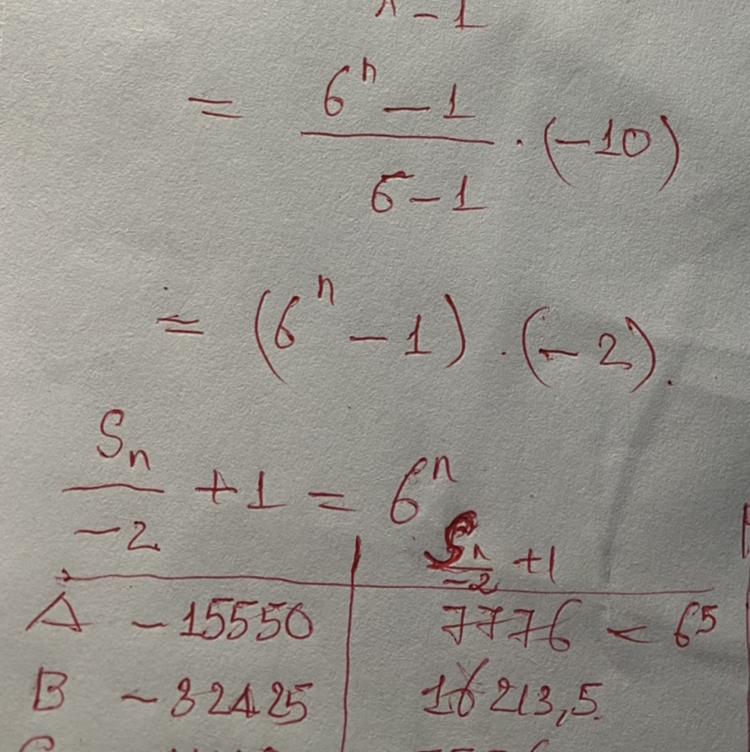 λ - 1
= 6ⁿ - 1 / 6 - 1 · (-10)
= (6ⁿ - 1) · (-2).
Sₙ / -2 + 1 = 6ⁿ
Sₙ / -2 + 1
A - 15550 7776 < 6⁵
B - 32425 16213,5